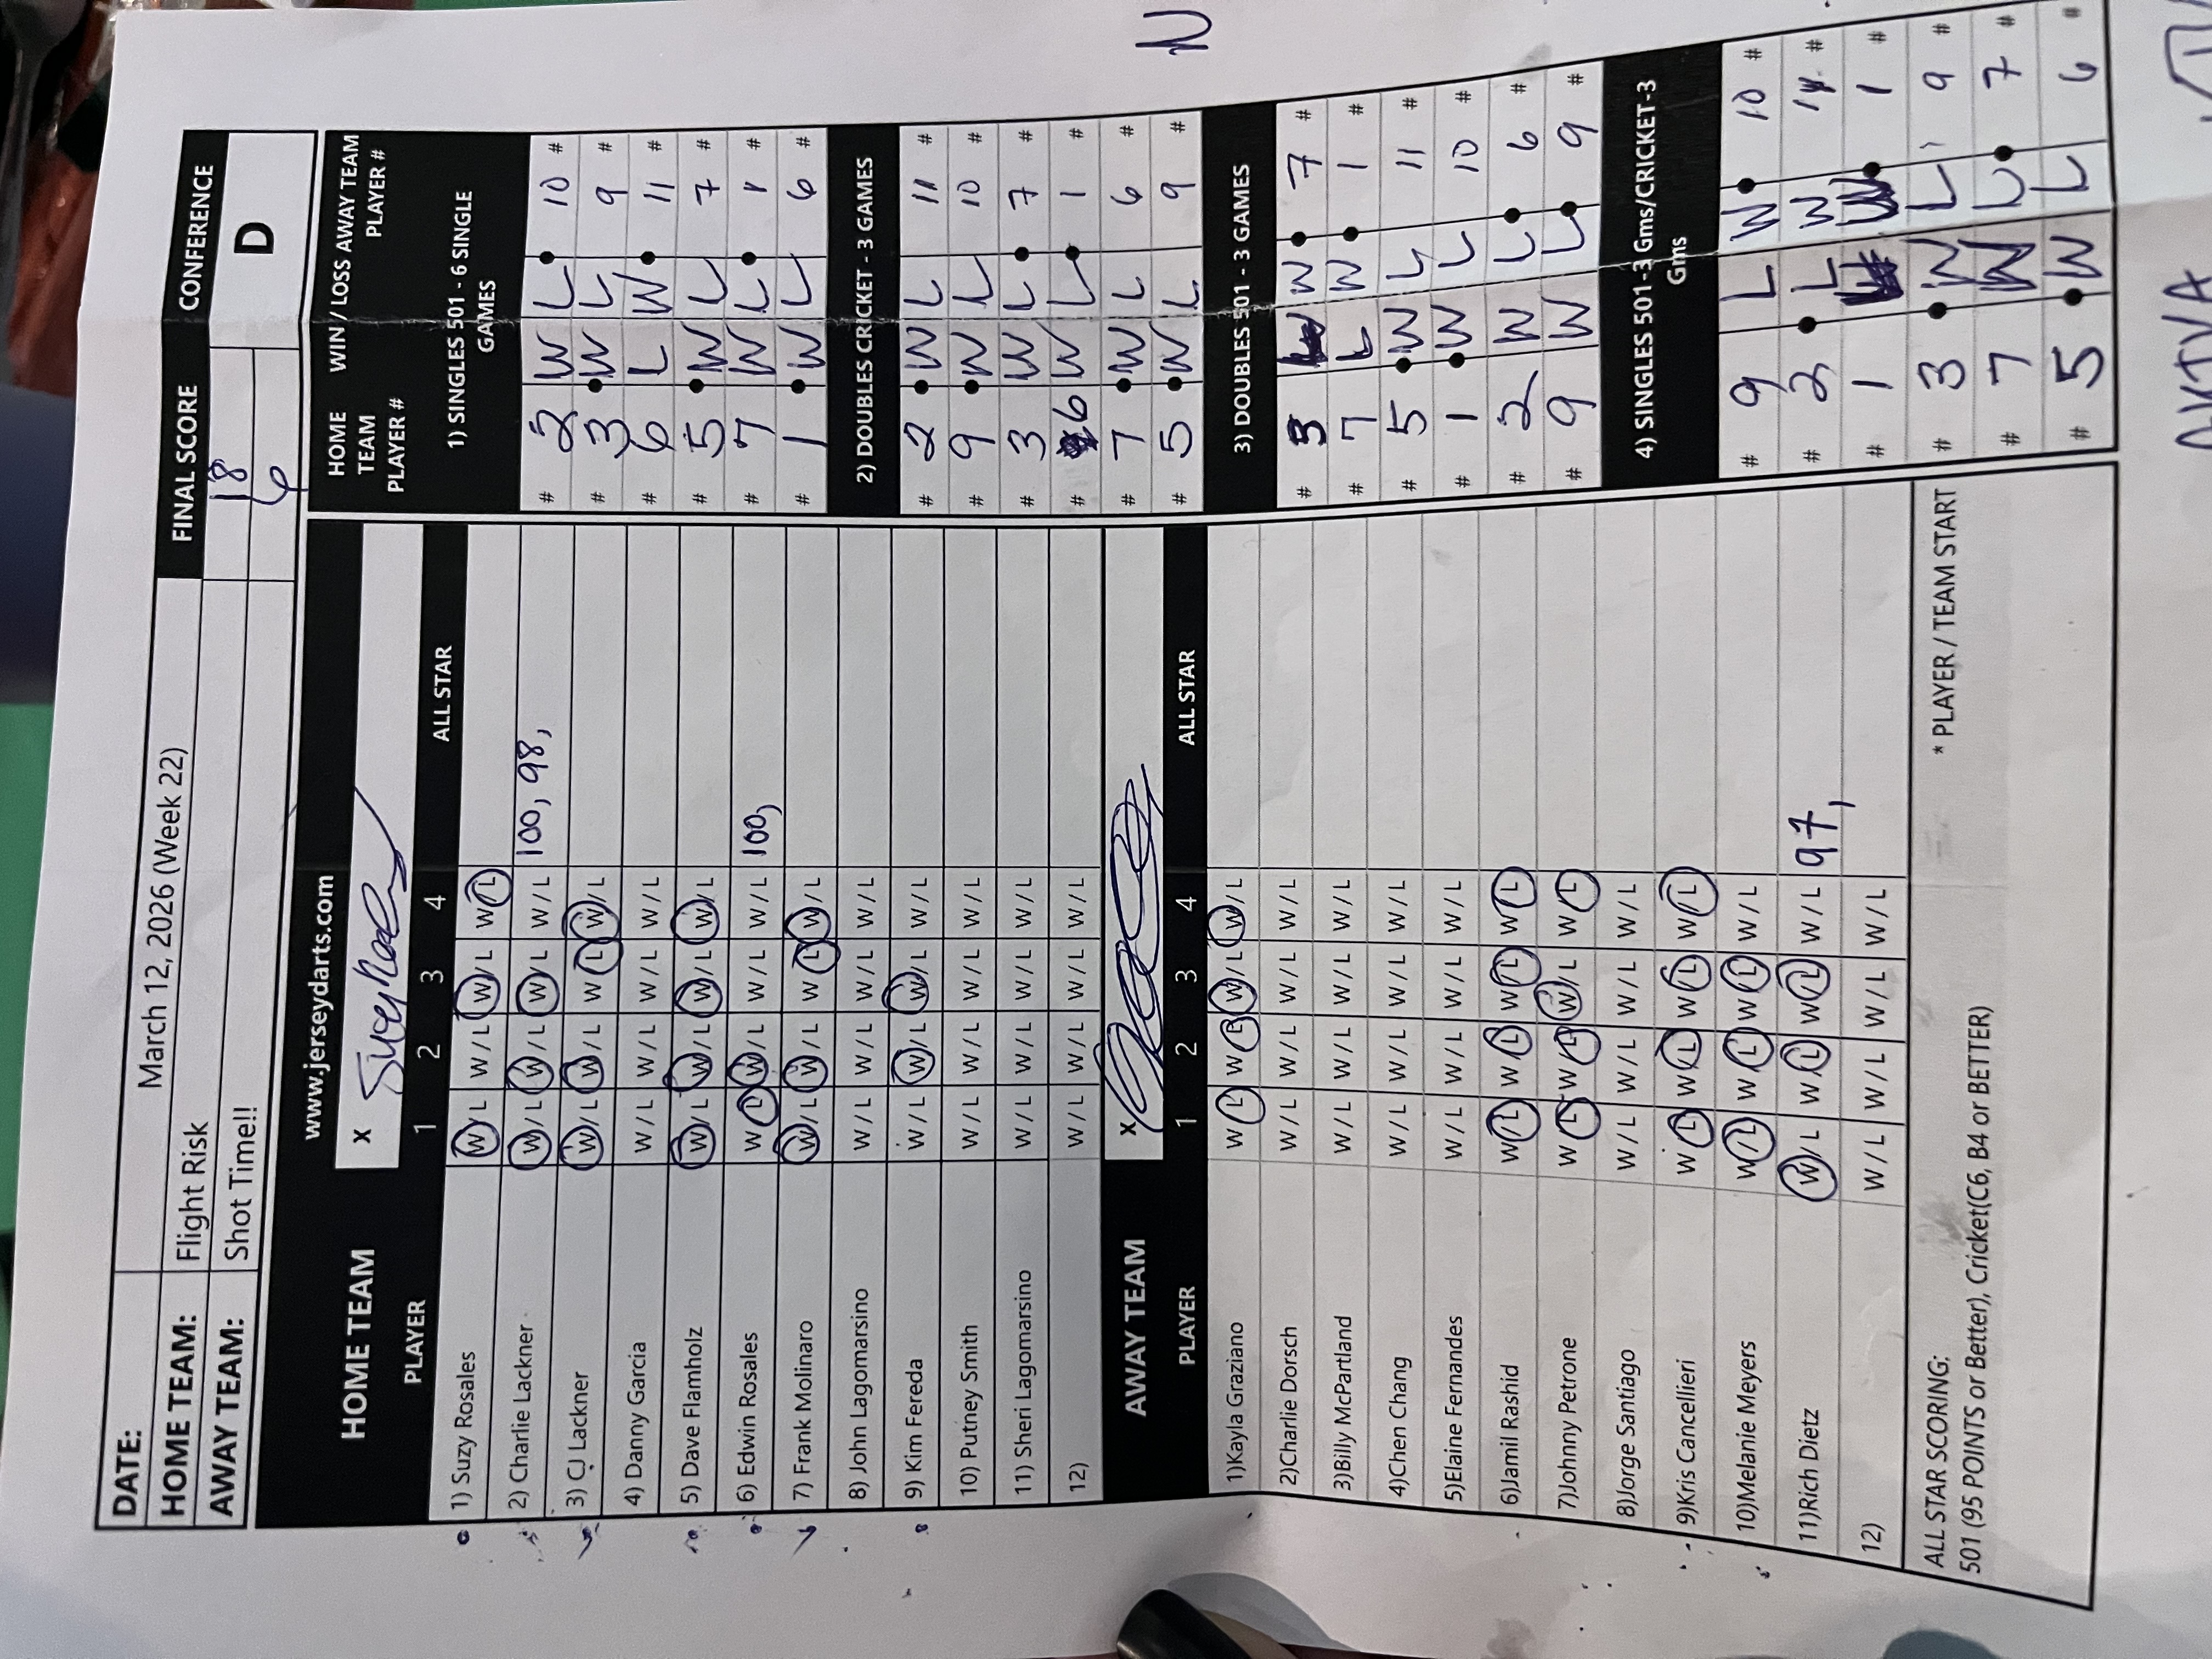 DATE: March 12, 2026 (Week 22) FINAL SCORE CONFERENCE
HOME TEAM: Flight Risk 18 D
AWAY TEAM: Shot Time!! 6
www.jerseydarts.com
HOME TEAM X
PLAYER 1 2 3 4 ALL STAR
1) Suzy Rosales W / L W / L W / L W / L
2) Charlie Lackner W / L W / L W / L W / L 100, 98,
3) CJ Lackner W / L W / L W / L W / L
4) Danny Garcia W / L W / L W / L W / L
5) Dave Flamholz W / L W / L W / L W / L
6) Edwin Rosales W / L W / L W / L W / L 100,
7) Frank Molinaro W / L W / L W / L W / L
8) John Lagomarsino W / L W / L W / L W / L
9) Kim Fereda W / L W / L W / L W / L
10) Putney Smith W / L W / L W / L W / L
11) Sheri Lagomarsino W / L W / L W / L W / L
12) W / L W / L W / L W / L
AWAY TEAM X
PLAYER 1 2 3 4 ALL STAR
1)Kayla Graziano W / L W / L W / L W / L
2)Charlie Dorsch W / L W / L W / L W / L
3)Billy McPartland W / L W / L W / L W / L
4)Chen Chang W / L W / L W / L W / L
5)Elaine Fernandes W / L W / L W / L W / L
6)Jamil Rashid W / L W / L W / L W / L
7)Johnny Petrone W / L W / L W / L W / L
8)Jorge Santiago W / L W / L W / L W / L
9)Kris Cancellieri W / L W / L W / L W / L
10)Melanie Meyers W / L W / L W / L W / L
11)Rich Dietz W / L W / L W / L W / L 97,
12) W / L W / L W / L W / L
ALL STAR SCORING: * PLAYER / TEAM START
501 (95 POINTS or Better), Cricket(C6, B4 or BETTER)
HOME TEAM PLAYER # WIN / LOSS AWAY TEAM PLAYER #
1) SINGLES 501 - 6 SINGLE
GAMES
# 2 W L 10 #
# 3 W L 9 #
# 6 L W 11 #
# 5 W L 7 #
# 7 W L 1 #
# 1 W L 6 #
2) DOUBLES CRICKET - 3 GAMES
# 2 W L 11 #
# 9 W L 10 #
# 3 W L 7 #
# 6 W L 1 #
# 7 W L 6 #
# 5 W L 9 #
3) DOUBLES 501 - 3 GAMES
# 3 W 7 #
# 7 L W 1 #
# 5 W L 11 #
# 1 W L 10 #
# 2 W L 6 #
# 9 W L 9 #
4) SINGLES 501-3 Gms/CRICKET-3
Gms
# 9 L W 10 #
# 2 L W 11 #
# 1 1 #
# 3 W L 9 #
# 7 W L 7 #
# 5 W L 6 #